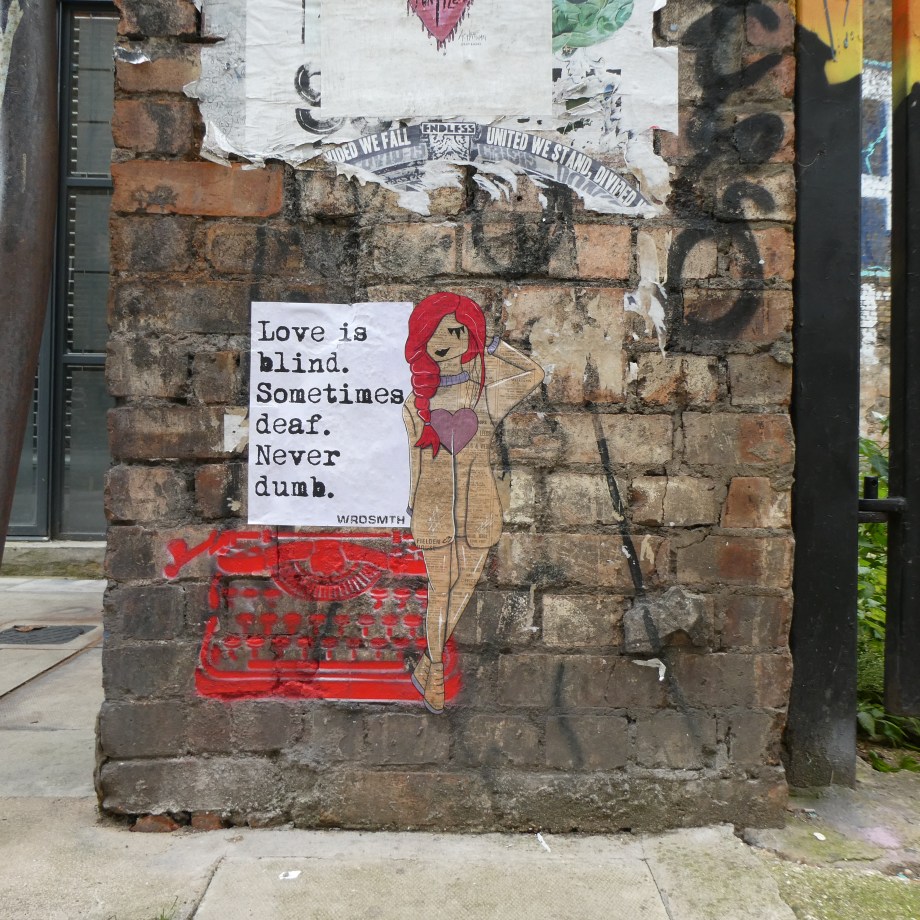 VIDED WE FALL ENDLESS UNITED WE STAND, DIVIDED
Love is
blind.
Sometimes
deaf.
Never
dumb.
WRDSMTH
FIELDEN